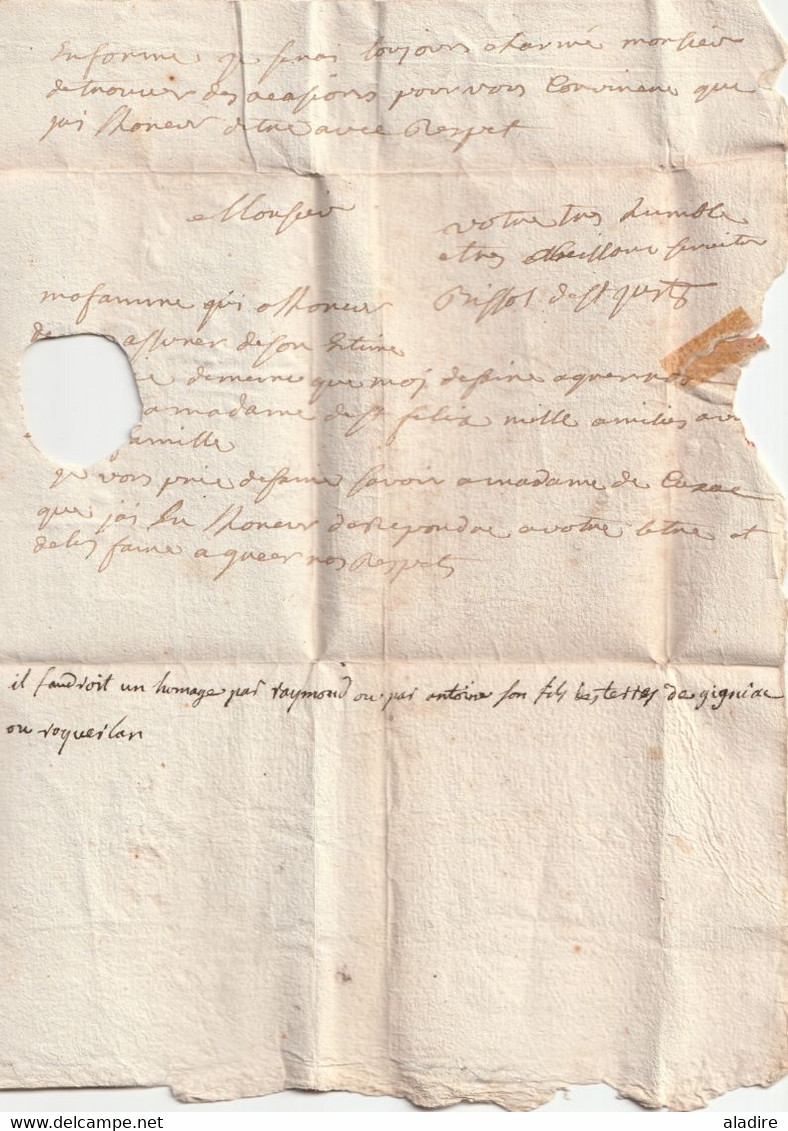 En forme, je serai toujours charmé monsieur
de trouver des ocasions pour vous Convincre que
jai lhoneur detre avec Respet
Monsieur
votre tres humble
et tres obeissant serviteur
Brissol de St Just
ma famme qui a lhoneur
assurer de son Estime
de meme que moj
a madame de St felix mille amities
famille
je vous prie de faire savoir a madame de Cuxac
que jai Eu lhoneur de Repondre a votre letre et
de luj faire agreer nos Respets
il faudroit un homage par raymond ou par antoine son fils des terres de gigniac
ou roquerlan
aladire
www.delcampe.net